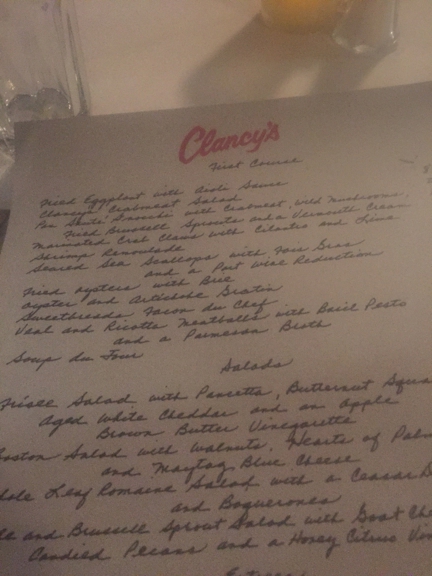 Clancy's
First Course
Fried Eggplant with Aioli Sauce
Clancy's Crabmeat Salad
Pan Sauté Gnocchi with Crabmeat, Wild Mushrooms,
Fried Brussell Sprouts and a Vermouth Cream
Marinated Crab Claws with Cilantro and Lime
Shrimp Remoulade
Seared Sea Scallops with Foie Gras
and a Port Wine Reduction
Fried Oysters with Brie
Oyster and Artichoke Gratin
Sweetbreads Facon du Chef
Veal and Ricotta Meatballs with Basil Pesto
and a Parmesan Broth
Soup du Jour
Salads
Frisee Salad with Pancetta, Butternut Squa
Aged White Cheddar and an Apple
Brown Butter Vinegarette
oston Salad with Walnuts, Hearts of Palm
and Maytag Blue Cheese
ole Leaf Romaine Salad with a Ceasar D
and Boquerones
le and Brussell Sprout Salad with Goat Che
Candied Pecans and a Honey Citrus Vin